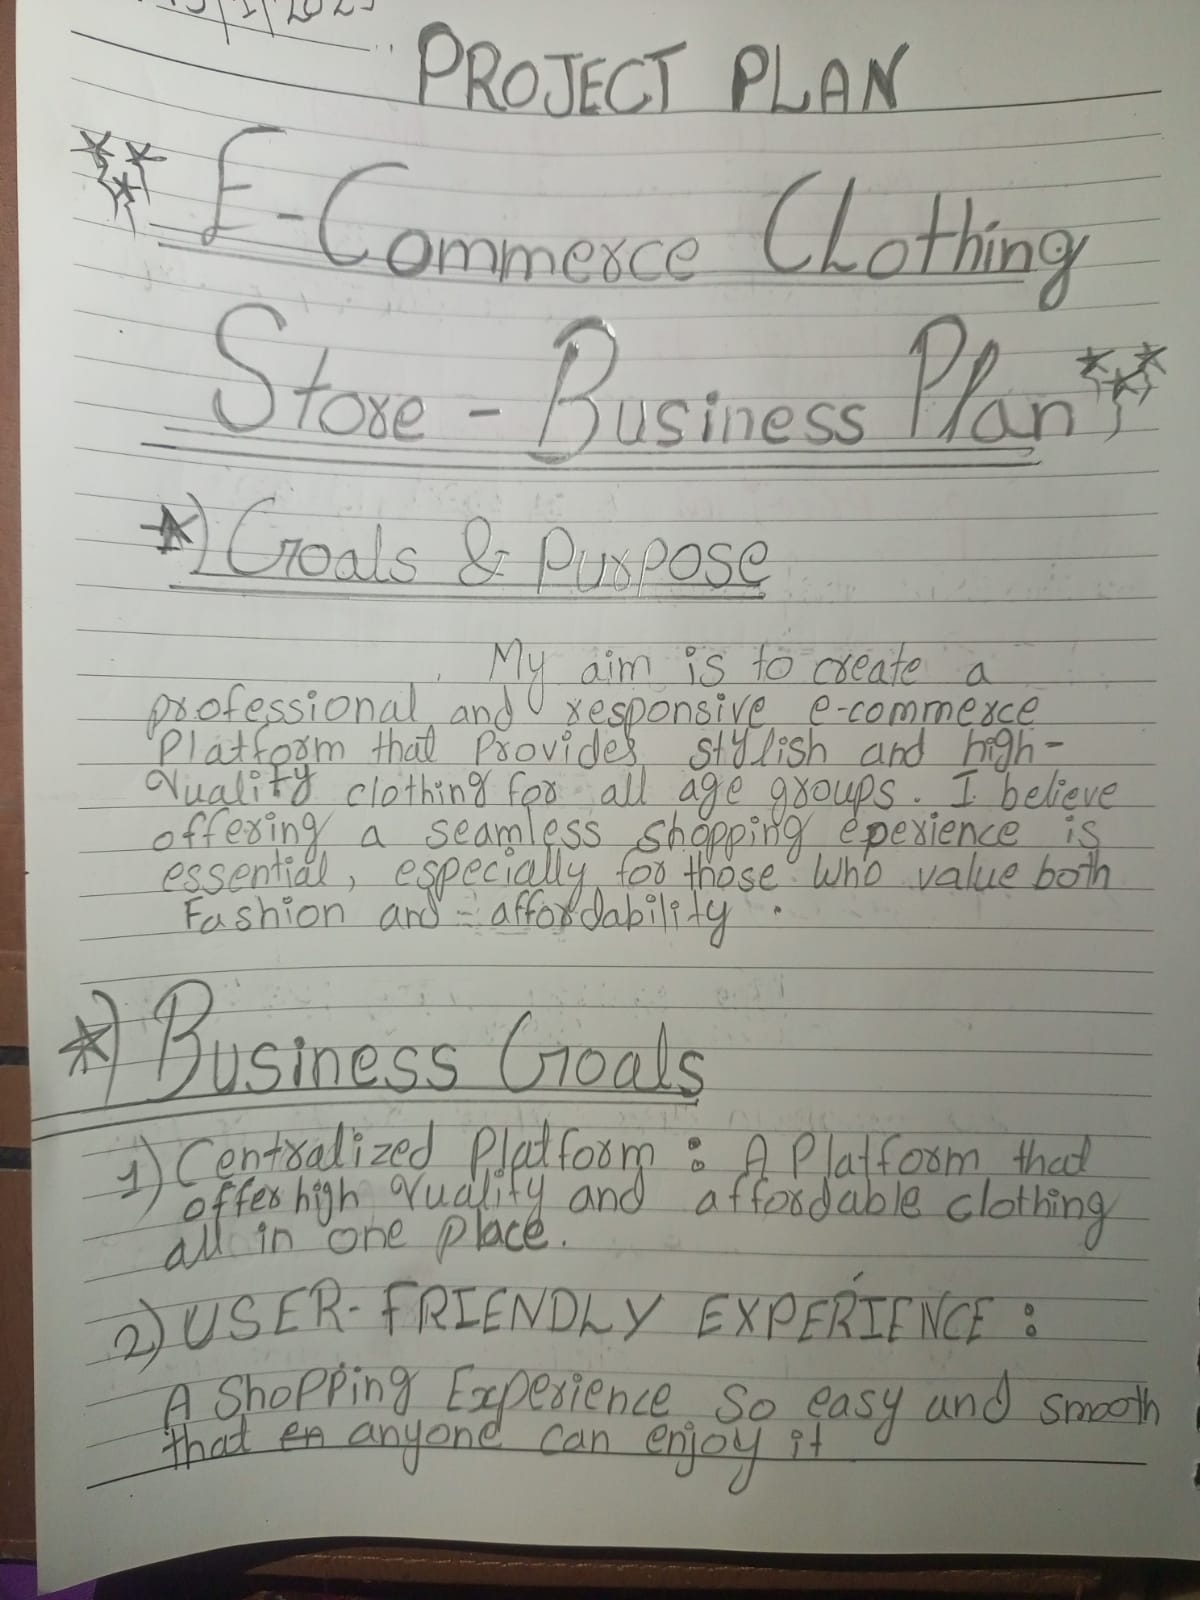 PROJECT PLAN
E-Commerce Clothing
Store - Business Plan
Goals & Purpose
My aim is to create a
professional and responsive e-commerce
Platform that Provides stylish and high-
Quality clothing for all age groups. I believe
offering a seamless shopping eperience is
essential, especially for those who value both
Fashion and - affordability.
Business Goals
1) Centralized Platform : A Platform that
offer high Quality and affordable clothing
all in one place.
2) USER-FRIENDLY EXPERIENCE :
A Shopping Experience So easy and smooth
that en anyone can enjoy it